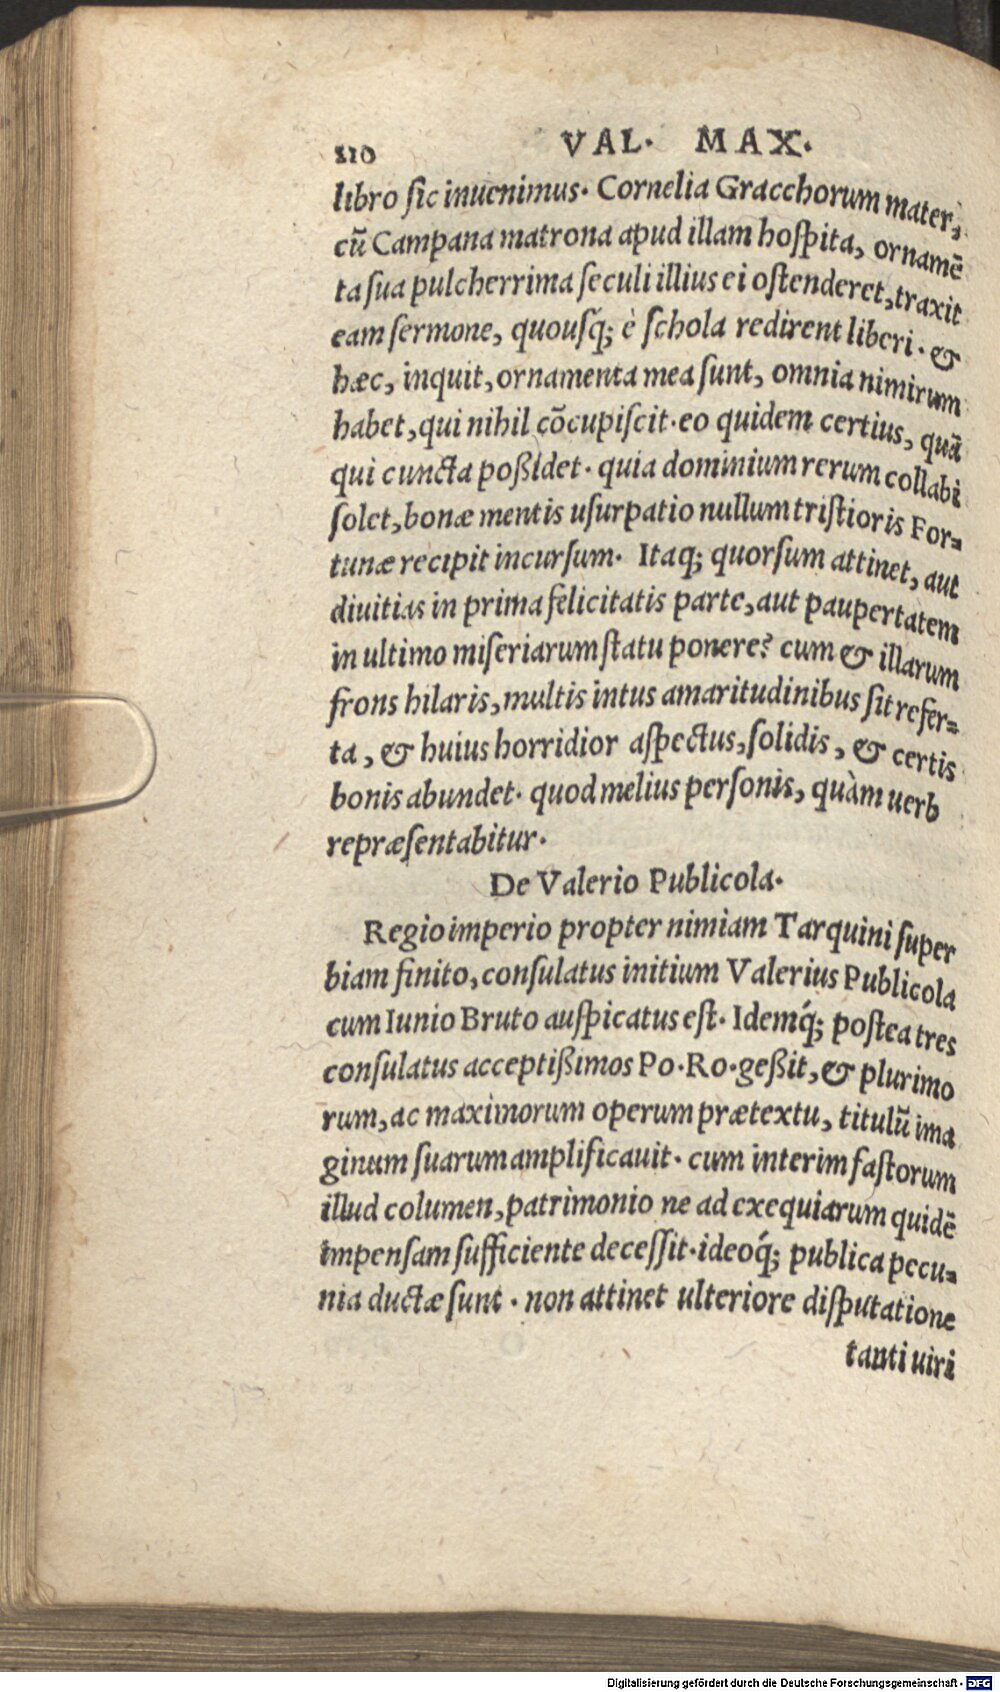 210 VAL. MAX.
libro sic inuenimus. Cornelia Gracchorum mater,
cũ Campana matrona apud illam hospita, ornamẽ
ta sua pulcherrima seculi illius ei ostenderet, traxit
eam sermone, quousq́; è schola redirent liberi. &
hæc, inquit, ornamenta mea sunt, omnia nimirum
habet, qui nihil cõcupiscit. eo quidem certius, quã
qui cuncta poßidet. quia dominium rerum collabi
solet, bonæ mentis usurpatio nullum tristioris For-
tunæ recipit incursum. Itaq; quorsum attinet, aut
diuitias in prima felicitatis parte, aut paupertatem
in ultimo miseriarum statu ponere? cum & illarum
frons hilaris, multis intus amaritudinibus sit refer-
ta, & huius horridior aspectus, solidis, & certis
bonis abundet. quod melius personis, quàm uerb
repræsentabitur.
De Valerio Publicola.
Regio imperio propter nimiam Tarquini super
biam finito, consulatus initium Valerius Publicola
cum Iunio Bruto auspicatus est. Idemq́; postea tres
consulatus acceptißimos Po. Ro. geßit, & plurimo
rum, ac maximorum operum prætextu, titulũ ima
ginum suarum amplificauit. cum interim fastorum
illud columen, patrimonio ne ad exequiarum quidẽ
impensam sufficiente decessit. ideoq́; publica pecu-
nia ductæ sunt. non attinet ulteriore disputatione
tanti uiri
Digitalisierung gefördert durch die Deutsche Forschungsgemeinschaft - DFG